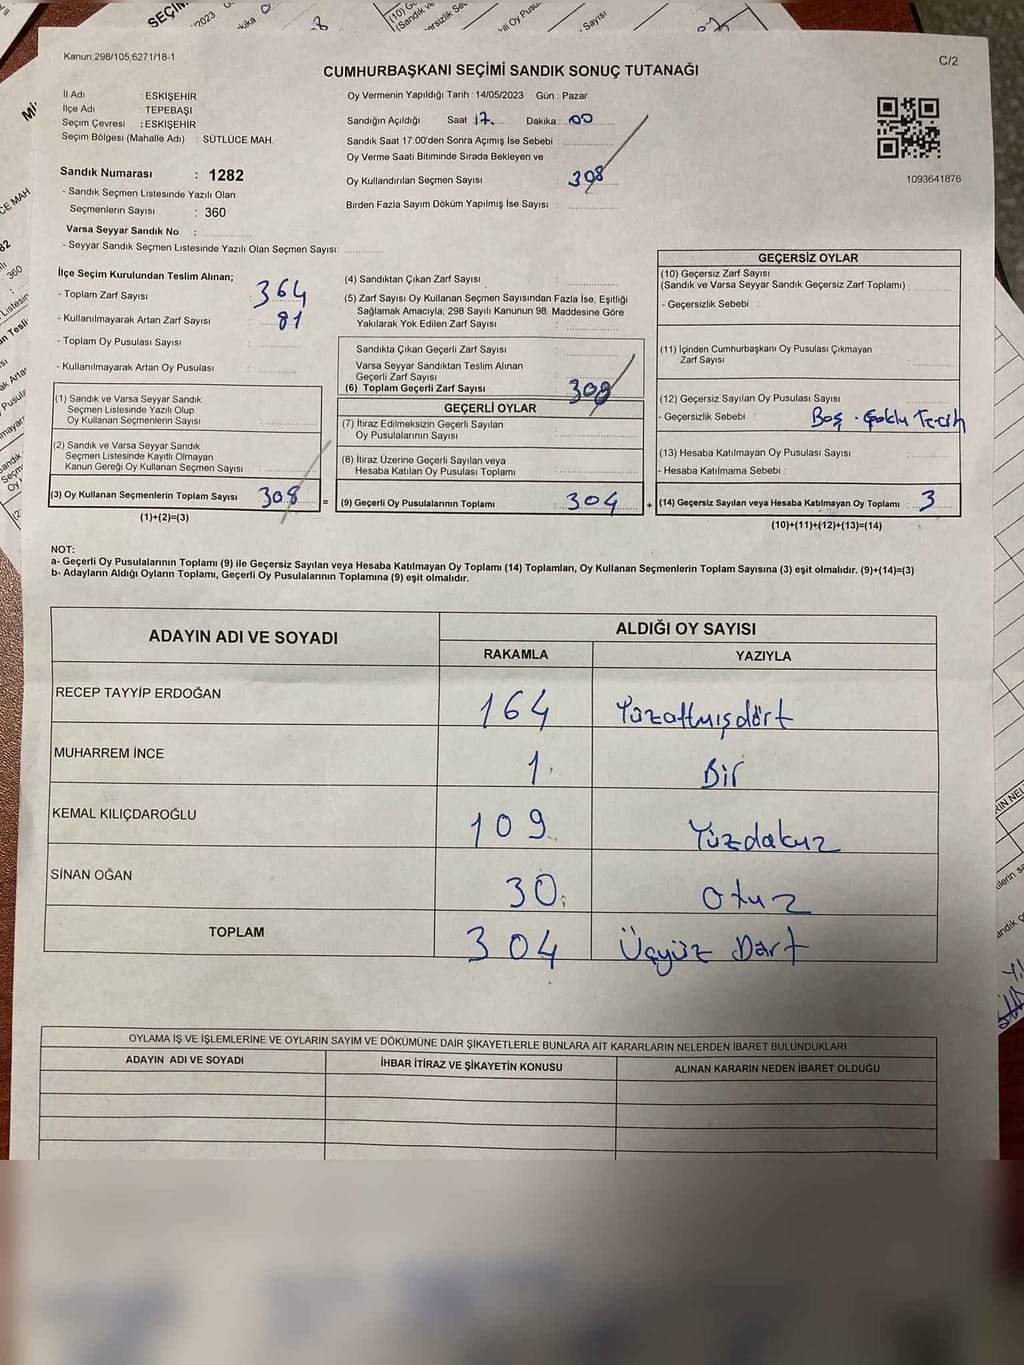 Kanun:298/105;6271/18-1
C/2
CUMHURBAŞKANI SEÇİMİ SANDIK SONUÇ TUTANAĞI
İl Adı : ESKİŞEHİR
İlçe Adı : TEPEBAŞI
Seçim Çevresi : ESKİŞEHİR
Seçim Bölgesi (Mahalle Adı) : SÜTLÜCE MAH.
Sandık Numarası : 1282
- Sandık Seçmen Listesinde Yazılı Olan
Seçmenlerin Sayısı : 360
Varsa Seyyar Sandık No :
- Seyyar Sandık Seçmen Listesinde Yazılı Olan Seçmen Sayısı:
Oy Vermenin Yapıldığı Tarih : 14/05/2023 Gün : Pazar
Sandığın Açıldığı Saat : 17 Dakika : 00
Sandık Saat 17:00'den Sonra Açımış İse Sebebi :
Oy Verme Saati Bitiminde Sırada Bekleyen ve
Oy Kullandırılan Seçmen Sayısı : 308
Birden Fazla Sayım Döküm Yapılmış İse Sayısı :
1093641876
İlçe Seçim Kurulundan Teslim Alınan;
- Toplam Zarf Sayısı : 364
- Kullanılmayarak Artan Zarf Sayısı : 81
- Toplam Oy Pusulası Sayısı :
- Kullanılmayarak Artan Oy Pusulası :
(1) Sandık ve Varsa Seyyar Sandık
Seçmen Listesinde Yazılı Olup
Oy Kullanan Seçmenlerin Sayısı :
(2) Sandık ve Varsa Seyyar Sandık
Seçmen Listesinde Kayıtlı Olmayan
Kanun Gereği Oy Kullanan Seçmen Sayısı :
(3) Oy Kullanan Seçmenlerin Toplam Sayısı 308 =
(1)+(2)=(3)
(4) Sandıktan Çıkan Zarf Sayısı :
(5) Zarf Sayısı Oy Kullanan Seçmen Sayısından Fazla İse, Eşitliği
Sağlamak Amacıyla; 298 Sayılı Kanunun 98. Maddesine Göre
Yakılarak Yok Edilen Zarf Sayısı :
Sandıkta Çıkan Geçerli Zarf Sayısı :
Varsa Seyyar Sandıktan Teslim Alınan
Geçerli Zarf Sayısı :
(6) Toplam Geçerli Zarf Sayısı : 308
GEÇERLİ OYLAR
(7) İtiraz Edilmeksizin Geçerli Sayılan
Oy Pusulalarının Sayısı :
(8) İtiraz Üzerine Geçerli Sayılan veya
Hesaba Katılan Oy Pusulası Toplamı :
(9) Geçerli Oy Pusulalarının Toplamı : 304 +
GEÇERSİZ OYLAR
(10) Geçersiz Zarf Sayısı
(Sandık ve Varsa Seyyar Sandık Geçersiz Zarf Toplamı) :
- Geçersizlik Sebebi :
(11) İçinden Cumhurbaşkanı Oy Pusulası Çıkmayan
Zarf Sayısı :
(12) Geçersiz Sayılan Oy Pusulası Sayısı :
- Geçersizlik Sebebi : Boş - Çoklu Tercih
(13) Hesaba Katılmayan Oy Pusulası Sayısı :
- Hesaba Katılmama Sebebi :
(14) Geçersiz Sayılan veya Hesaba Katılmayan Oy Toplamı : 3
(10)+(11)+(12)+(13)=(14)
NOT:
a- Geçerli Oy Pusulalarının Toplamı (9) ile Geçersiz Sayılan veya Hesaba Katılmayan Oy Toplamı (14) Toplamları, Oy Kullanan Seçmenlerin Toplam Sayısına (3) eşit olmalıdır. (9)+(14)=(3)
b- Adayların Aldığı Oyların Toplamı, Geçerli Oy Pusulalarının Toplamına (9) eşit olmalıdır.
ADAYIN ADI VE SOYADI
ALDIĞI OY SAYISI
RAKAMLA YAZIYLA
RECEP TAYYİP ERDOĞAN 164 Yüzaltmışdört
MUHARREM İNCE 1 Bir
KEMAL KILIÇDAROĞLU 109 Yüzdokuz
SİNAN OĞAN 30 Otuz
TOPLAM 304 Üçyüz Dört
OYLAMA İŞ VE İŞLEMLERİNE VE OYLARIN SAYIM VE DÖKÜMÜNE DAİR ŞİKAYETLERLE BUNLARA AİT KARARLARIN NELERDEN İBARET BULUNDUKLARI
ADAYIN ADI VE SOYADI İHBAR İTİRAZ VE ŞİKAYETİN KONUSU ALINAN KARARIN NEDEN İBARET OLDUĞU